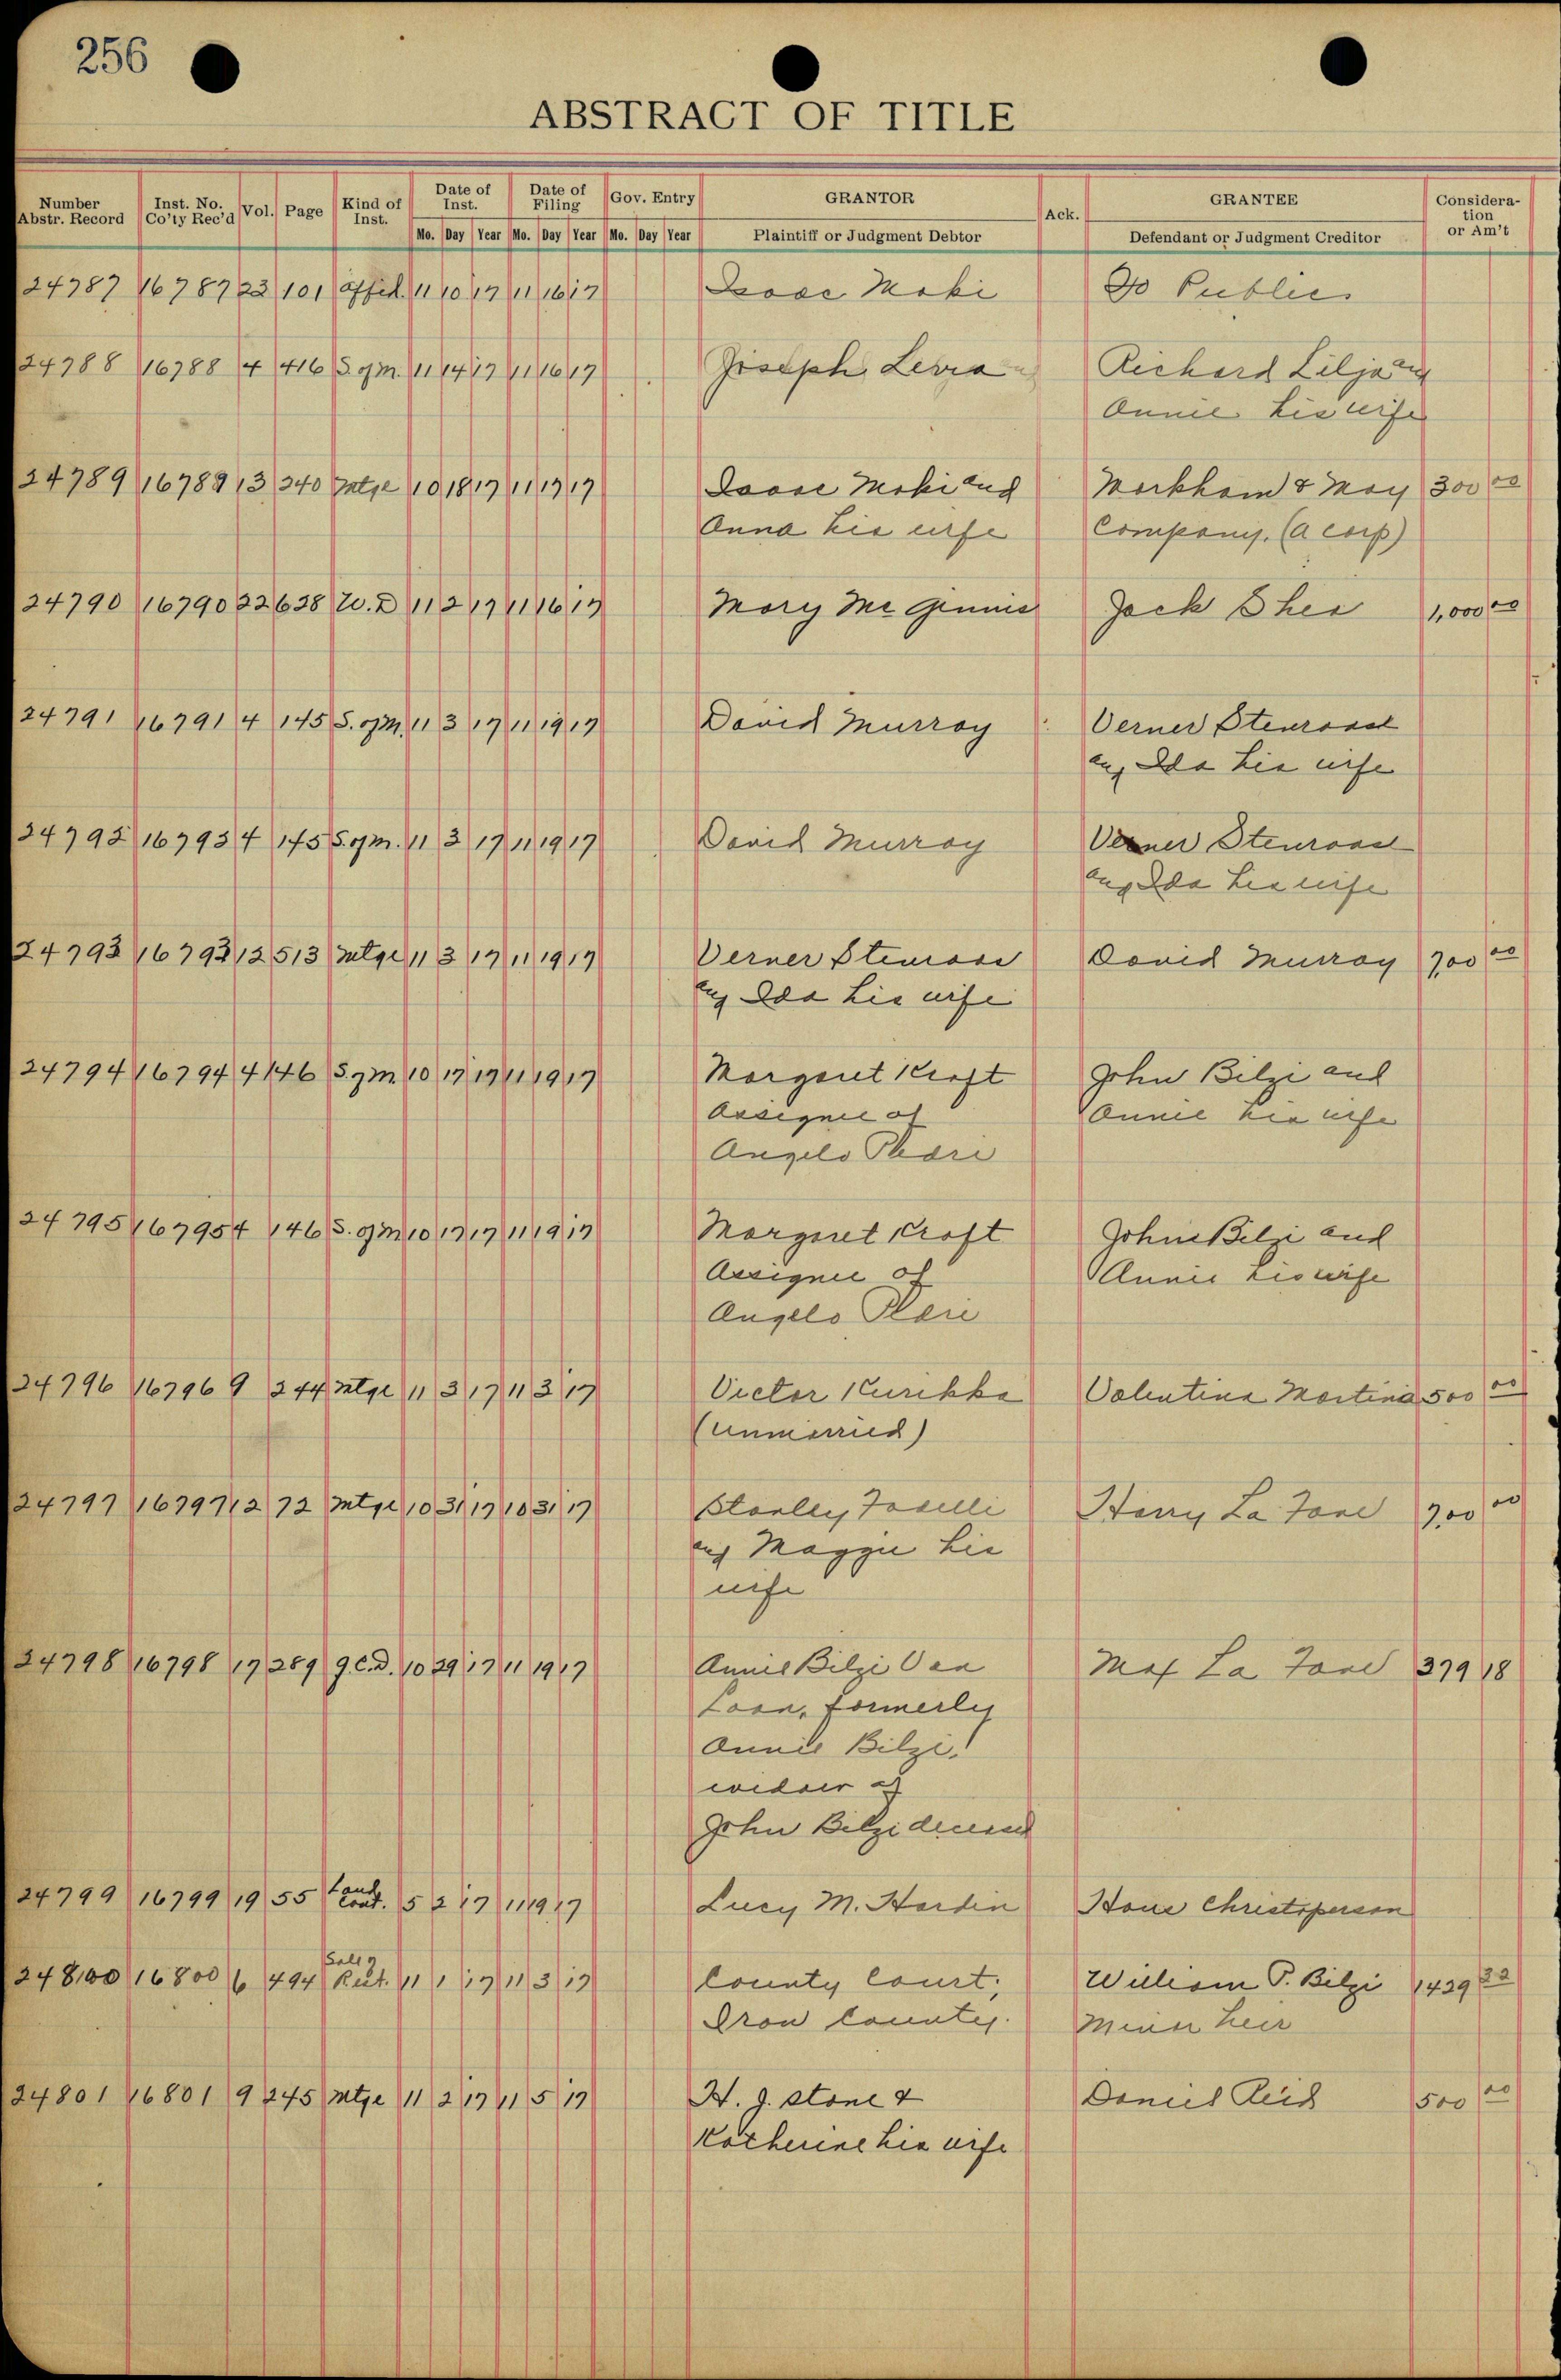 256
ABSTRACT OF TITLE
Number Abstr. Record Inst. No. Co'ty Rec'd Vol. Page Kind of Inst. Date of Inst. Date of Filing Gov. Entry GRANTOR Ack. GRANTEE Consideration or Am't
Mo. Day Year Mo. Day Year Mo. Day Year Plaintiff or Judgment Debtor Defendant or Judgment Creditor
24787 16787 22 101 Affid. 11 10 17 11 16 17 Isaac Maki To Public
24788 16788 4 416 S. of M. 11 14 17 11 16 17 Joseph Levra Richard Lilja and
Annie his wife
24789 16789 13 240 Mtge 10 18 17 11 17 17 Isaac Maki and Markham & May 300 00
Anna his wife Company. (a corp)
24790 16790 22 628 W. D 11 2 17 11 16 17 Mary Mc Ginnis Jack Shea 1,000 00
24791 16791 4 145 S. of M. 11 3 17 11 19 17 David Murray Verner Stenroos
and Ida his wife
24792 16792 4 145 S. of M. 11 3 17 11 19 17 David Murray Verner Stenroos
and Ida his wife
24793 16793 12 513 Mtge 11 3 17 11 19 17 Verner Stenroos David Murray 700 00
and Ida his wife
24794 16794 4 146 S. of M 10 17 17 11 19 17 Margaret Kraft John Bilzi and
Assignee of Annie his wife
Angelo
24795 16795 4 146 S. of M 10 17 17 11 19 17 Margaret Kraft John Bilzi and
Assignee of Annie his wife
Angelo
24796 16796 9 244 Mtge 11 3 17 11 3 17 Victor Kurikka Valentina Martinia 500 00
(unmarried)
24797 16797 12 72 Mtge 10 31 17 10 31 17 Stanley Harry La Fave 700 00
and Maggie his
wife
24798 16798 17 289 Q.C.D. 10 29 17 11 19 17 Annie Bilzi Van Max La Fave 379 18
Loan, formerly
Annie Bilzi,
widow of
John Bilzi deceased
24799 16799 19 55 Land Cont. 5 2 17 11 19 17 Lucy M. Hardin Hans Christoperson
24800 16800 6 494 11 1 17 11 3 17 County Court, William P. Bilzi 1439 32
Iron County. Minor heir
24801 16801 9 245 Mtge 11 2 17 11 5 17 H. J. Stone & Daniel Reid 500 00
Katherine his wife